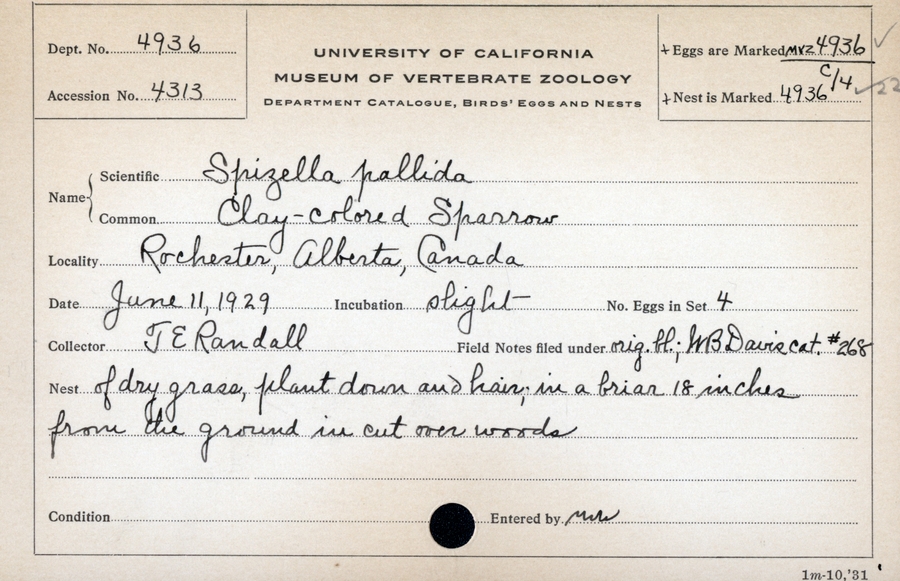 Dept. No. 4936
Accession No. 4313
UNIVERSITY OF CALIFORNIA
MUSEUM OF VERTEBRATE ZOOLOGY
DEPARTMENT CATALOGUE, BIRDS' EGGS AND NESTS
+ Eggs are Marked MVZ 4936 ✓
c/4
+ Nest is Marked 4936 ✓
Name { Scientific Spizella pallida
Common Clay-colored Sparrow
Locality Rochester, Alberta, Canada
Date June 11, 1929 Incubation slight No. Eggs in Set 4
Collector T E Randall Field Notes filed under orig. bl.; WB Davis cat. #268
Nest of dry grass, plant down and hair; in a briar 18 inches
from the ground in cut over woods
Condition Entered by
1m-10,'31